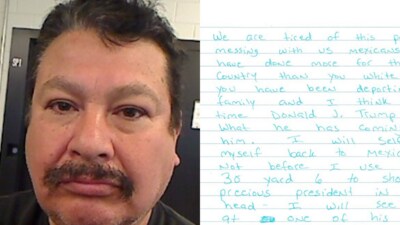 We are tired of this p
messing with us mexicans
have done more for th
Country than you white
you have been deportin
family and I think
time Donald J. Trump
What he has coming
him. I will self
myself back to Mexic
Not before I use
30 yard 6 to sho
precious president in
head - I will see
at one of his